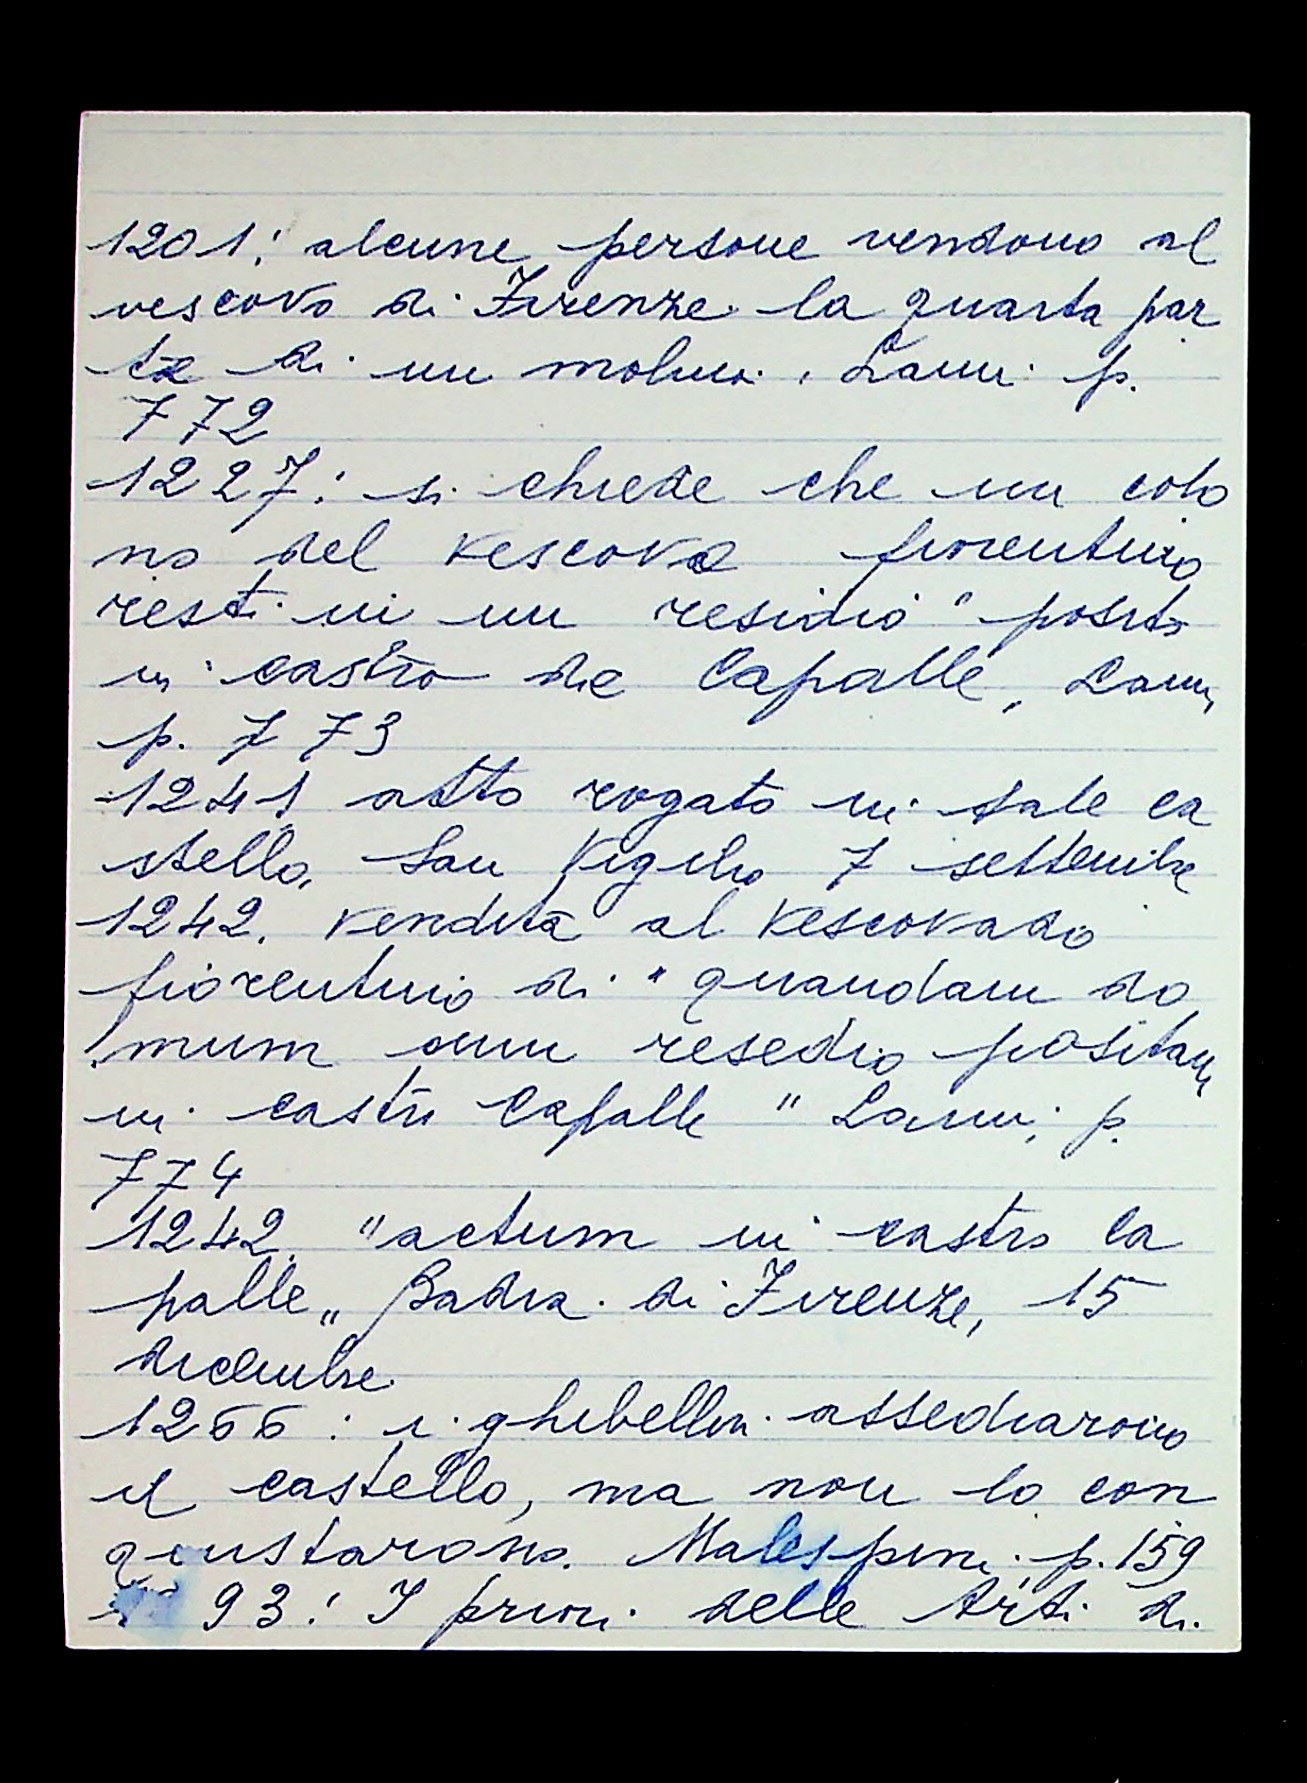 1201: alcune persone vendono al
vescovo di Firenze la quarta par
te di un molino. Lami p.
772
1227: si chiede che un colo
no del Vescovo fiorentino
resti in un residio " posito
in castro de Capalle, Lami,
p. 773
1241 atto rogato in tale ca
stello, San Vigilio 7 settembre
1242. Vendita al Vescovado
fiorentino di " quandam do
mum cum resedio positam
in castri Capalle " Lami, p.
774
1242. "actum in castro Ca
palle„ Badia di Firenze, 15
dicembre
1266: i ghibellin. assediarono
il castello, ma non lo con
quistarono. Malespini p. 159
93: I priori delle Arti di